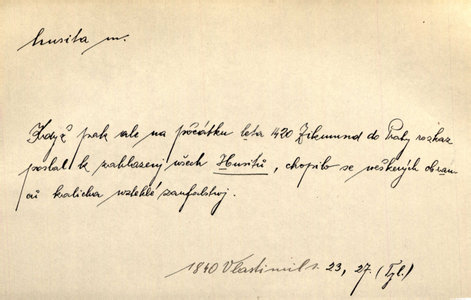 husita m.
Když pak ale na počátku leta 1420 Zikmund do Prahy rozkaz
poslal k zahlazenj všech Husitů, chopilo se veškerých obran-
ců kalicha vzteklé zaufalstvj.
1840 Vlastimil 1. 23, 27. (Tyl.)